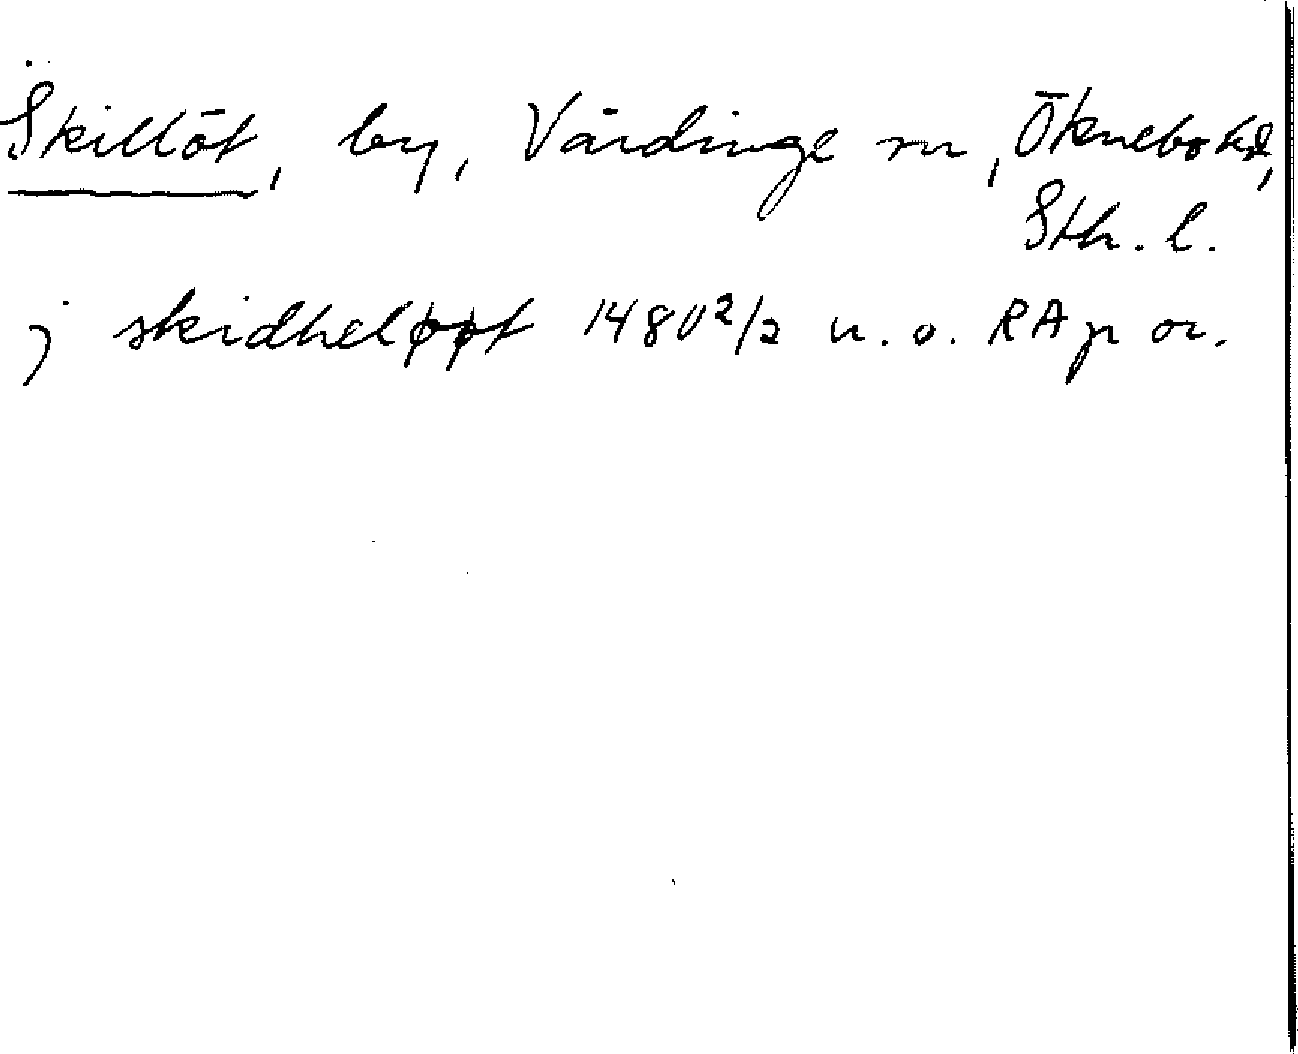 Skillöt, by, Vårdinge sn, Öknebo hd,
Sth. l.
j skidheløøt 1480 2/2 u. o. RAp or.